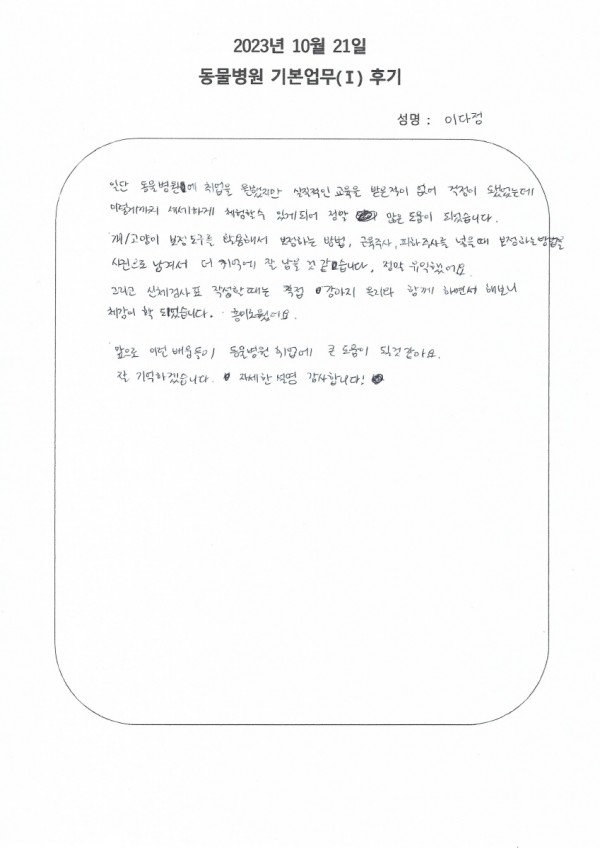 2023년 10월 21일
동물병원 기본업무(Ⅰ) 후기
성명 : 이다정
일단 동물병원에 취업을 원했지만 실질적인 교육을 받은적이 없어 걱정이 됐었는데
이렇게까지 세세하게 체험할수 있게되어 정말 많은 도움이 되었습니다.
개/고양이 보정도구를 활용해서 보정하는 방법, 근육주사, 피하주사를 넣을때 보정하는방법을
사진으로 남겨서 더 기억에 잘 남을 것 같습니다, 정말 유익했어요
그리고 신체검사표 작성할때는 직접 강아지 몸지라 함께 하면서 해보니
체감이 확 되었습니다. 흥미로웠어요.
앞으로 이런 배움들이 동물병원 취업에 큰 도움이 될것같아요.
잘 기억하겠습니다. 자세한 설명 감사합니다!